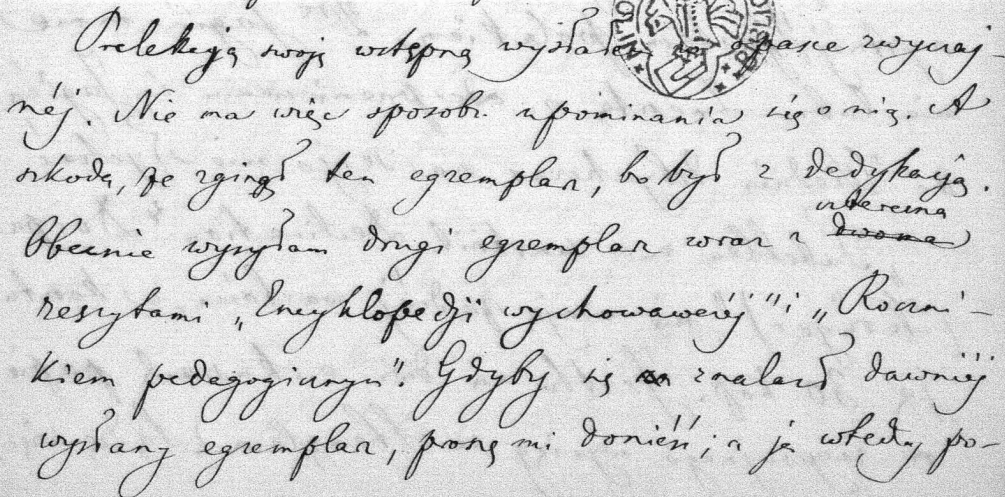 Prelekcją swoją wstępną wysłałem w opasce zwyczaj-
néj. Nie ma więc sposobu upominania się o nią. A
szkoda, że zginął ten egzemplarz, bo był z dedykacją.
czterema
Obecnie wysyłam drugi egzemplarz wraz z dwoma
zeszytami „Encyklopedji wychowawczéj" i „Roczni-
kiem pedagogicznym". Gdyby się znalazł dawniéj
wysłany egzemplarz, proszę mi donieść; a ja wtedy po-